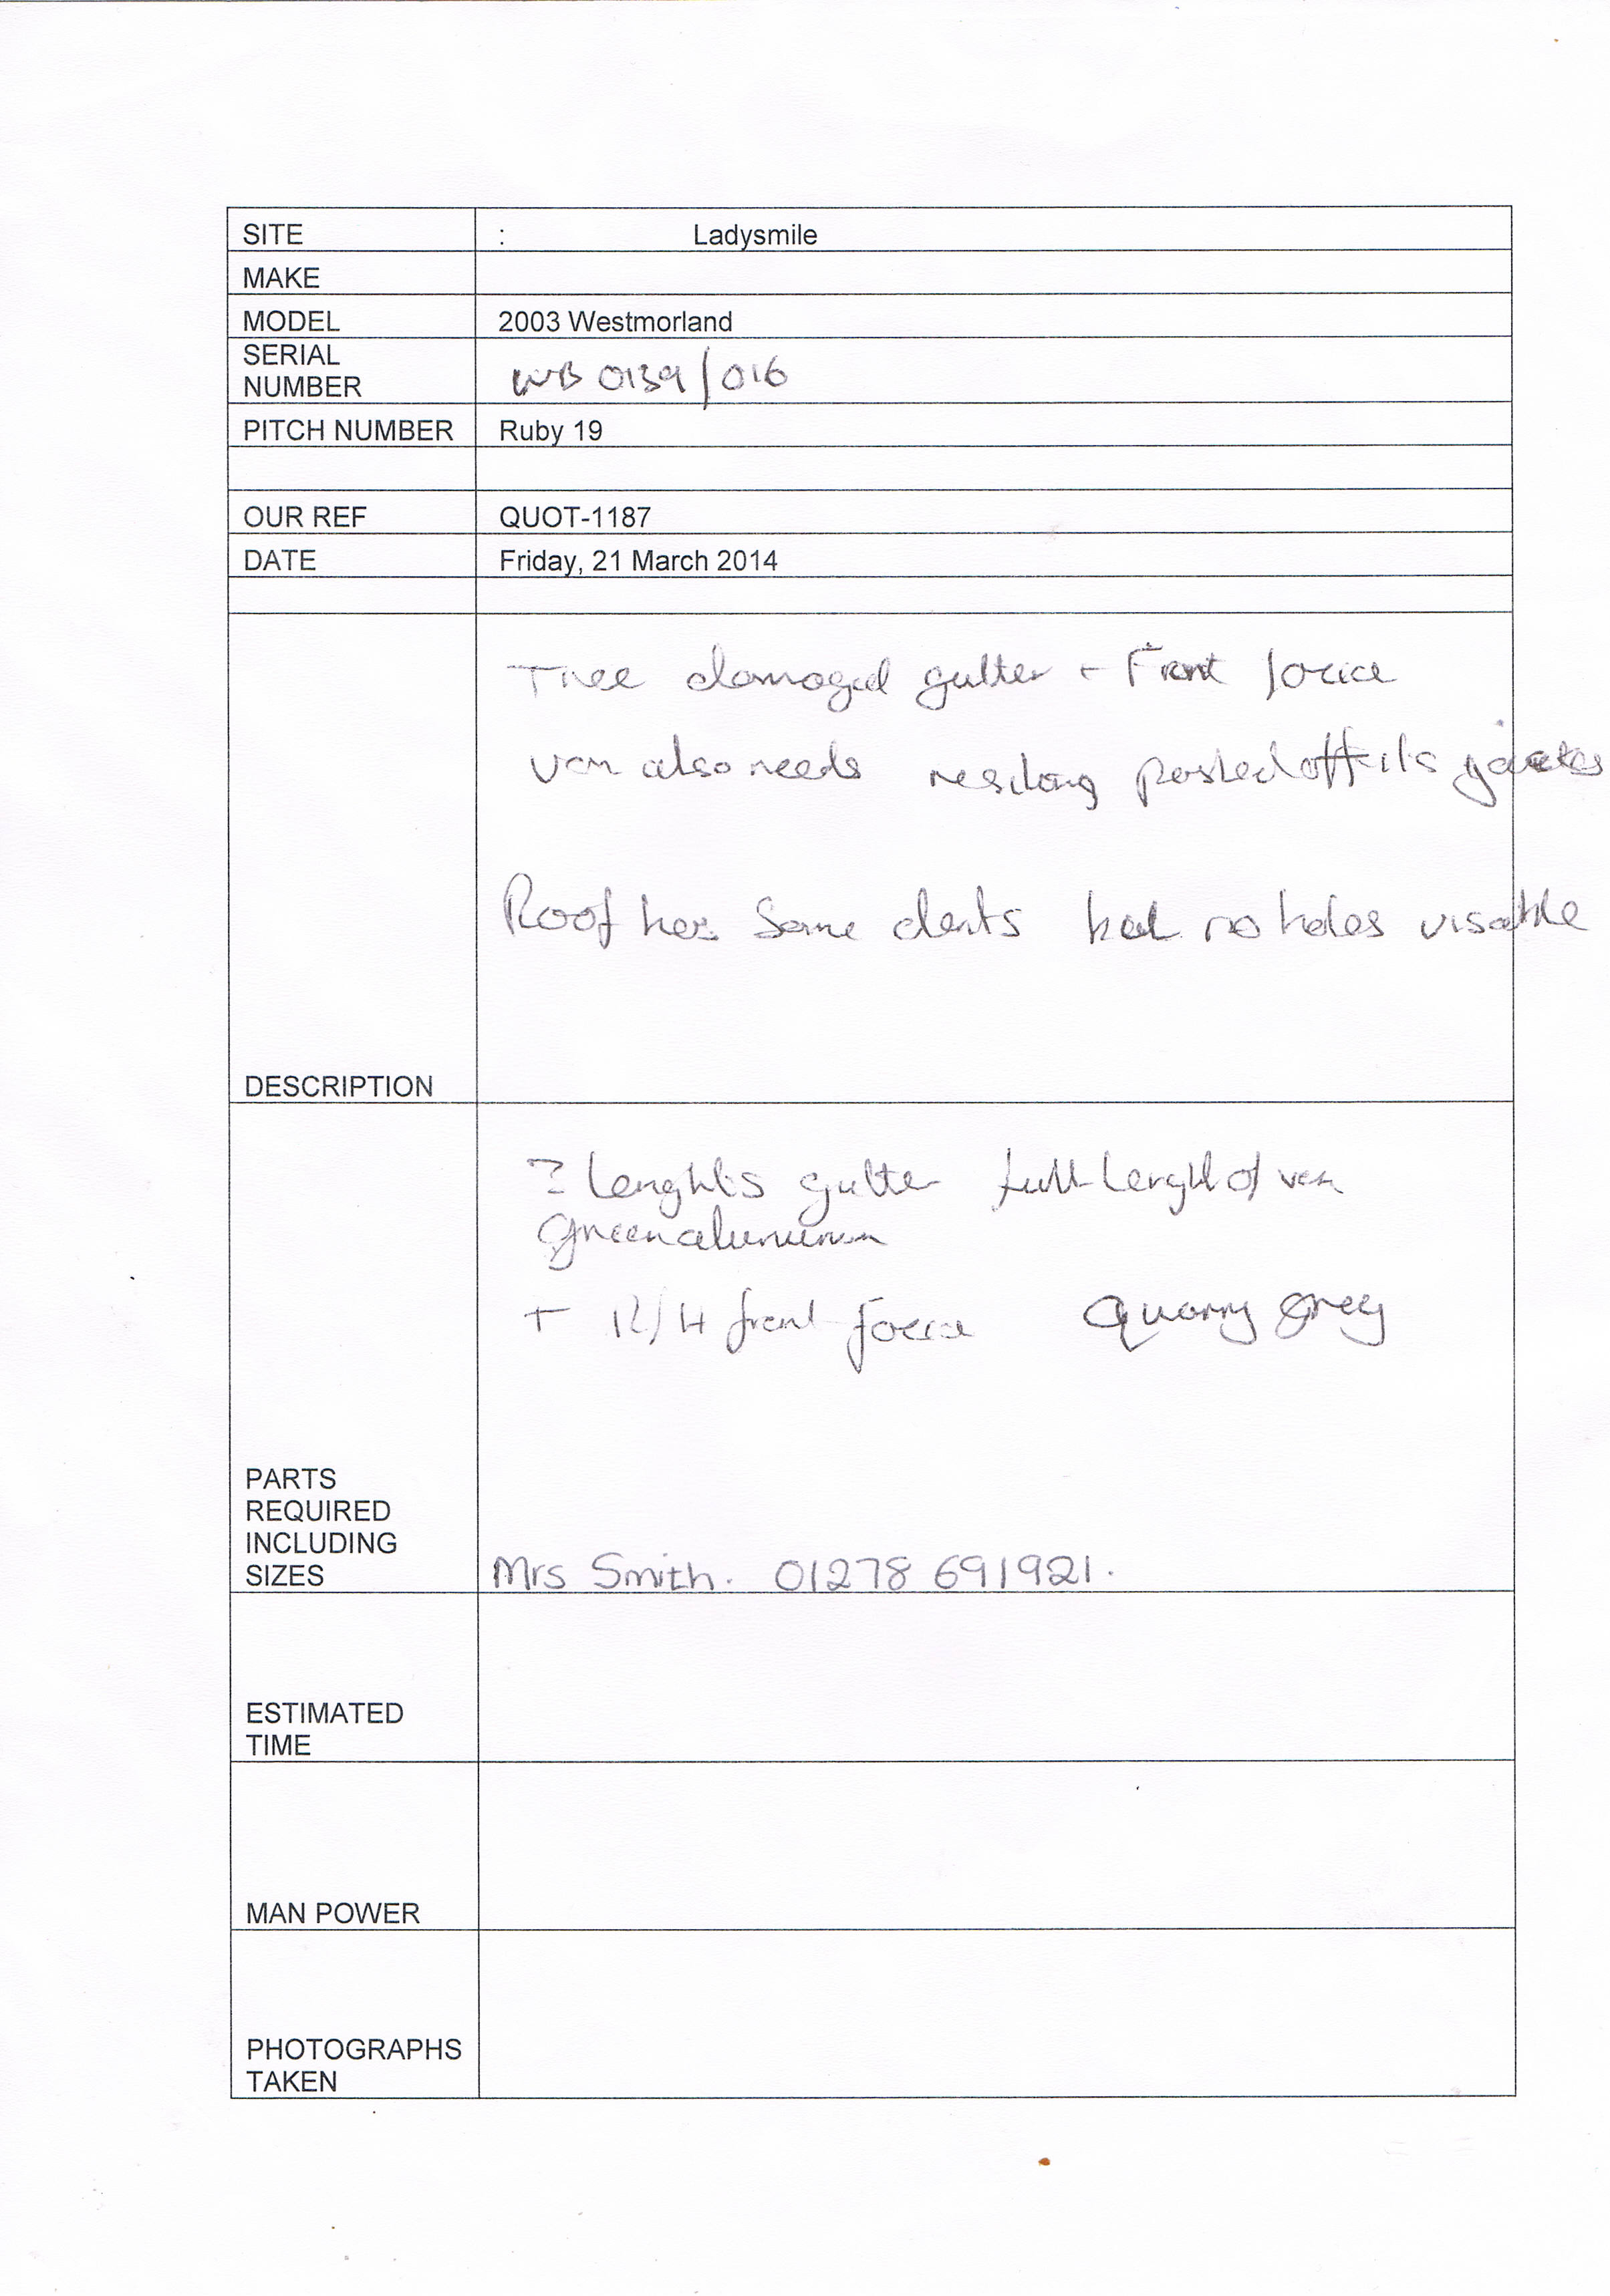 SITE : Ladysmile
MAKE
MODEL 2003 Westmorland
SERIAL
NUMBER WB 0139/016
PITCH NUMBER Ruby 19
OUR REF QUOT-1187
DATE Friday, 21 March 2014
Tree damaged gutter + Front
van also needs off its
Roof has some dents but no holes visable
DESCRIPTION
lenghts gutter full lenght of van
green aluminum
+ R/H front Quarry Grey
PARTS
REQUIRED
INCLUDING
SIZES Mrs Smith. 01278 691921.
ESTIMATED
TIME
MAN POWER
PHOTOGRAPHS
TAKEN